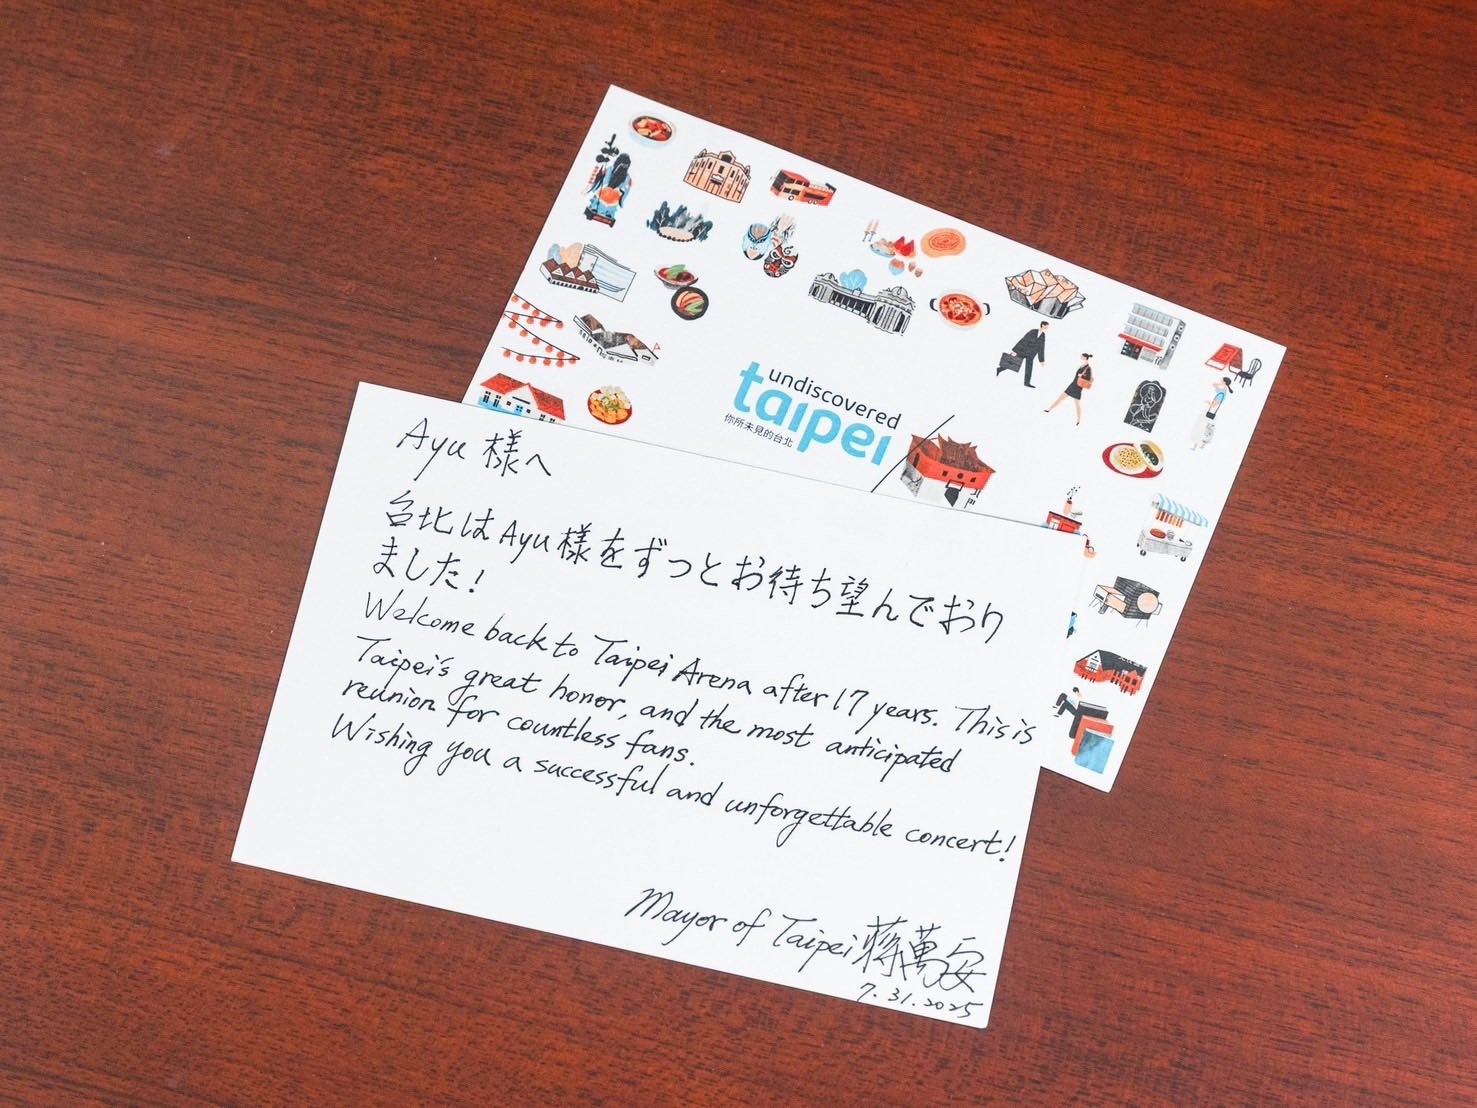 undiscovered
taipei
你所未見的台北
Ayu 様へ
台北はAyu様をずっとお待ち望んでおり
ました!
Welcome back to Taipei Arena after 17 years. This is
Taipei's great honor, and the most anticipated
reunion for countless fans.
Wishing you a successful and unforgettable concert!
Mayor of Taipei 蔣萬安
7.31.2025